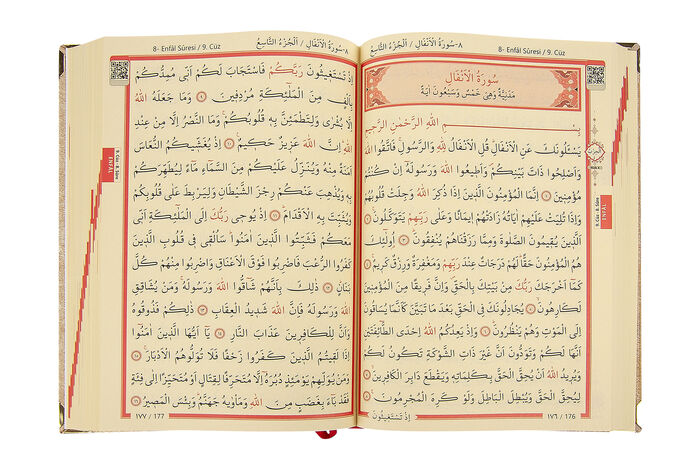 ٨-سُورَةُ الْاَنْفَالِ / اَلْجُزْءُ التَّاسِعُ
8- Enfâl Sûresi / 9. Cüz
سُورَةُ الْاَنْفَالِ
مَدَنِيَّةٌ وَهِيَ خَمْسٌ وَسَبْعُونَ اٰيَةً
بِسْمِ اللّٰهِ الرَّحْمٰنِ الرَّحِيمِ
يَسْـَٔلُونَكَ عَنِ الْاَنْفَالِ قُلِ الْاَنْفَالُ لِلّٰهِ وَالرَّسُولِ فَاتَّقُوا اللّٰهَ
وَاَصْلِحُوا ذَاتَ بَيْنِكُمْ وَاَطِيعُوا اللّٰهَ وَرَسُولَهُٓ اِنْ كُنْتُمْ
مُؤْمِنِينَ ﴿١﴾ اِنَّمَا الْمُؤْمِنُونَ الَّذِينَ اِذَا ذُكِرَ اللّٰهُ وَجِلَتْ قُلُوبُهُمْ
وَاِذَا تُلِيَتْ عَلَيْهِمْ اٰيَاتُهُ زَادَتْهُمْ اِيمَانًا وَعَلٰى رَبِّهِمْ يَتَوَكَّلُونَ ﴿٢﴾
اَلَّذِينَ يُقِيمُونَ الصَّلٰوةَ وَمِمَّا رَزَقْنَاهُمْ يُنْفِقُونَ ﴿٣﴾ اُو۬لٰٓئِكَ
هُمُ الْمُؤْمِنُونَ حَقًّا لَهُمْ دَرَجَاتٌ عِنْدَ رَبِّهِمْ وَمَغْفِرَةٌ وَرِزْقٌ كَرِيمٌ ﴿٤﴾
كَمَٓا اَخْرَجَكَ رَبُّكَ مِنْ بَيْتِكَ بِالْحَقِّ وَاِنَّ فَرِيقًا مِنَ الْمُؤْمِنِينَ
لَكَارِهُونَ ﴿٥﴾ يُجَادِلُونَكَ فِي الْحَقِّ بَعْدَ مَا تَبَيَّنَ كَاَنَّمَا يُسَاقُونَ
اِلَى الْمَوْتِ وَهُمْ يَنْظُرُونَ ﴿٦﴾ وَاِذْ يَعِدُكُمُ اللّٰهُ اِحْدَى الطَّٓائِفَتَيْنِ
اَنَّهَا لَكُمْ وَتَوَدُّونَ اَنَّ غَيْرَ ذَاتِ الشَّوْكَةِ تَكُونُ لَكُمْ
وَيُرِيدُ اللّٰهُ اَنْ يُحِقَّ الْحَقَّ بِكَلِمَاتِهِ وَيَقْطَعَ دَابِرَ الْكَافِرِينَ ﴿٧﴾
لِيُحِقَّ الْحَقَّ وَيُبْطِلَ الْبَاطِلَ وَلَوْ كَرِهَ الْمُجْرِمُونَ ﴿٨﴾
اِذْ تَسْتَغِيثُونَ
١٧٦ / 176
9. Cüz - 8. Sûre
ENFÂL
٨-سُورَةُ الْاَنْفَالِ / اَلْجُزْءُ التَّاسِعُ
8- Enfâl Sûresi / 9. Cüz
اِذْ تَسْتَغِيثُونَ رَبَّكُمْ فَاسْتَجَابَ لَكُمْ اَنِّي مُمِدُّكُمْ
بِاَلْفٍ مِنَ الْمَلٰٓئِكَةِ مُرْدِفِينَ ﴿٩﴾ وَمَا جَعَلَهُ اللّٰهُ
اِلَّا بُشْرٰى وَلِتَطْمَئِنَّ بِهِ قُلُوبُكُمْ وَمَا النَّصْرُ اِلَّا مِنْ عِنْدِ
اللّٰهِ اِنَّ اللّٰهَ عَزِيزٌ حَكِيمٌ ﴿١٠﴾ اِذْ يُغَشِّيكُمُ النُّعَاسَ
اَمَنَةً مِنْهُ وَيُنَزِّلُ عَلَيْكُمْ مِنَ السَّمَٓاءِ مَٓاءً لِيُطَهِّرَكُمْ
بِهِ وَيُذْهِبَ عَنْكُمْ رِجْزَ الشَّيْطَانِ وَلِيَرْبِطَ عَلٰى قُلُوبِكُمْ
وَيُثَبِّتَ بِهِ الْاَقْدَامَ ﴿١١﴾ اِذْ يُوحِي رَبُّكَ اِلَى الْمَلٰٓئِكَةِ اَنِّي
مَعَكُمْ فَثَبِّتُوا الَّذِينَ اٰمَنُوا سَاُلْقِي فِي قُلُوبِ الَّذِينَ
كَفَرُوا الرُّعْبَ فَاضْرِبُوا فَوْقَ الْاَعْنَاقِ وَاضْرِبُوا مِنْهُمْ كُلَّ
بَنَانٍ ﴿١٢﴾ ذٰلِكَ بِاَنَّهُمْ شَٓاقُّوا اللّٰهَ وَرَسُولَهُ وَمَنْ يُشَاقِقِ
اللّٰهَ وَرَسُولَهُ فَاِنَّ اللّٰهَ شَدِيدُ الْعِقَابِ ﴿١٣﴾ ذٰلِكُمْ فَذُوقُوهُ
وَاَنَّ لِلْكَافِرِينَ عَذَابَ النَّارِ ﴿١٤﴾ يَٓا اَيُّهَا الَّذِينَ اٰمَنُٓوا
اِذَا لَقِيتُمُ الَّذِينَ كَفَرُوا زَحْفًا فَلَا تُوَلُّوهُمُ الْاَدْبَارَ ﴿١٥﴾
وَمَنْ يُوَلِّهِمْ يَوْمَئِذٍ دُبُرَهُٓ اِلَّا مُتَحَرِّفًا لِقِتَالٍ اَوْ مُتَحَيِّزًا اِلٰى فِئَةٍ
فَقَدْ بَٓاءَ بِغَضَبٍ مِنَ اللّٰهِ وَمَأْوٰيهُ جَهَنَّمُ وَبِئْسَ الْمَصِيرُ ﴿١٦﴾
١٧٧ / 177
9. Cüz - 8. Sûre
ENFÂL